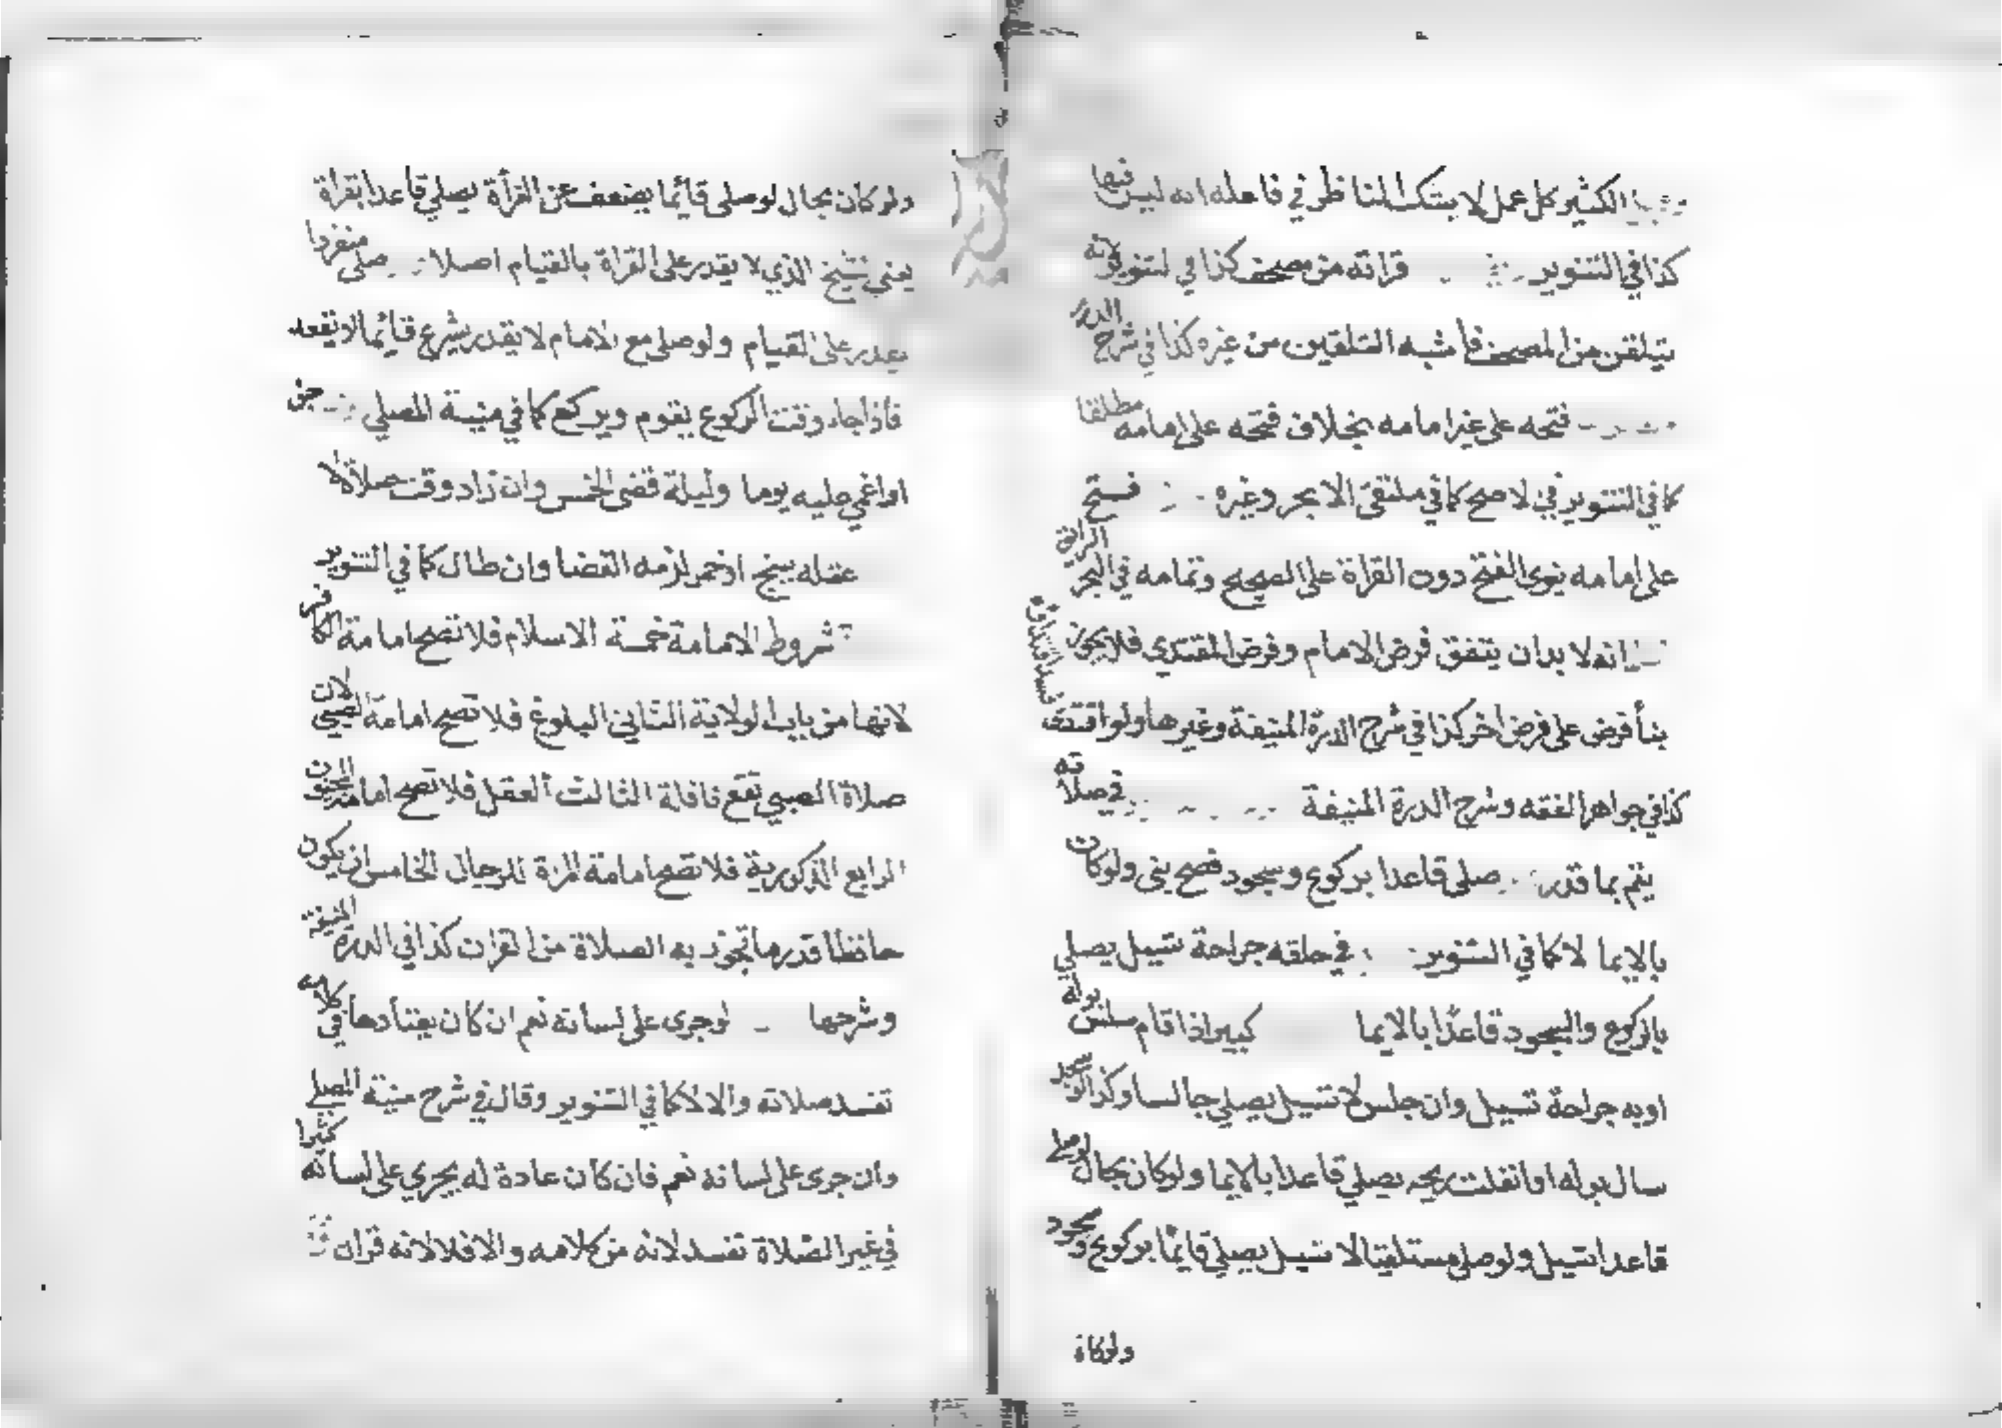 الكثير كل عمل لا يشك الناظر في فاعله انه ليس فيها
كذا في التنوير قراته من مصحف كذا في التنوير لانه
يتلقن من المصحف فاشبه التلقين من غيره كذا في شرح الدرر
فتحه على غير امامه بخلاف فتحه على امامه مطلقا
كما في التنوير في لاصح كما في ملتقى الابحر وغيره فتح
على امامه ينوى الفتح دون القراة على الصحيح وتمامه في البحر الرائق
انه لا بد ان يتفق فرض الامام وفرض المقتدي فلا يجوز
بنأ فرض على فرض اخر كذا في شرح الدرة المنيفة وغيرها ولو اقتدى فسد اقتداؤه
كذا في جواهر الفقه وشرح الدرة المنيفة في صلاته
يتم بما قدر صلى قاعدا بركوع وسجود فصح بنى ولو كان
بالايما لا كما في التنوير في حلقه جراحة تسيل يصلي
بالركوع والسجود قاعدا بالايما كبير اذا قام سلس بوله
او به جراحة تسيل وان جلس لا تسيل يصلي جالسا وكذا لو سجد
سال بوله او انفلت ريحه يصلي قاعدا بالايما ولو كان بحال لو صلى
قاعدا تسيل ولو صلى مستلقيا لا تسيل يصلي قايمًا بركوع وسجود
ولو كان
ولو كان بحال لو صلى قائما يضعف عن القرأة يصلي قاعدا بقراة
يعني شيخ الذي لا يقدر على القراة بالقيام اصلا صلى منفردا
يقدر على القيام ولو صلى مع الامام لا يقدر يشرع قائما لا يقعد
فاذا جاء وقت الركوع يقوم ويركع كما في منية المصلي جن
او اغمي عليه يوما وليلة قضى الخمس وان زاد وقت صلاة لا
عقله ببنج او خمر لزمه القضا وان طال كما في التنوير
شروط الامامة خمسة الاسلام فلا تصح امامة الكافر
لانها من باب الولاية الثاني البلوغ فلا تصح امامة الصبي لان
صلاة الصبي تقع نافلة الثالث العقل فلا تصح امامة المجنون
الرابع الذكورية فلا تصح امامة المراة للرجال الخامس ان يكون
حافظا قدر ما تجوز به الصلاة من القران كذا في الدرة المنيفة
وشرحها لو جرى على لسانه نعم ان كان يعتادها في كلامه
تفسد صلاته والا لا كما في التنوير وقال في شرح منية المصلي
وان جرى على لسانه نعم فان كان عادة له يجري على لسانه كثيرا
في غير الصلاة تفسد لانه من كلامه والا فلا لانه قران